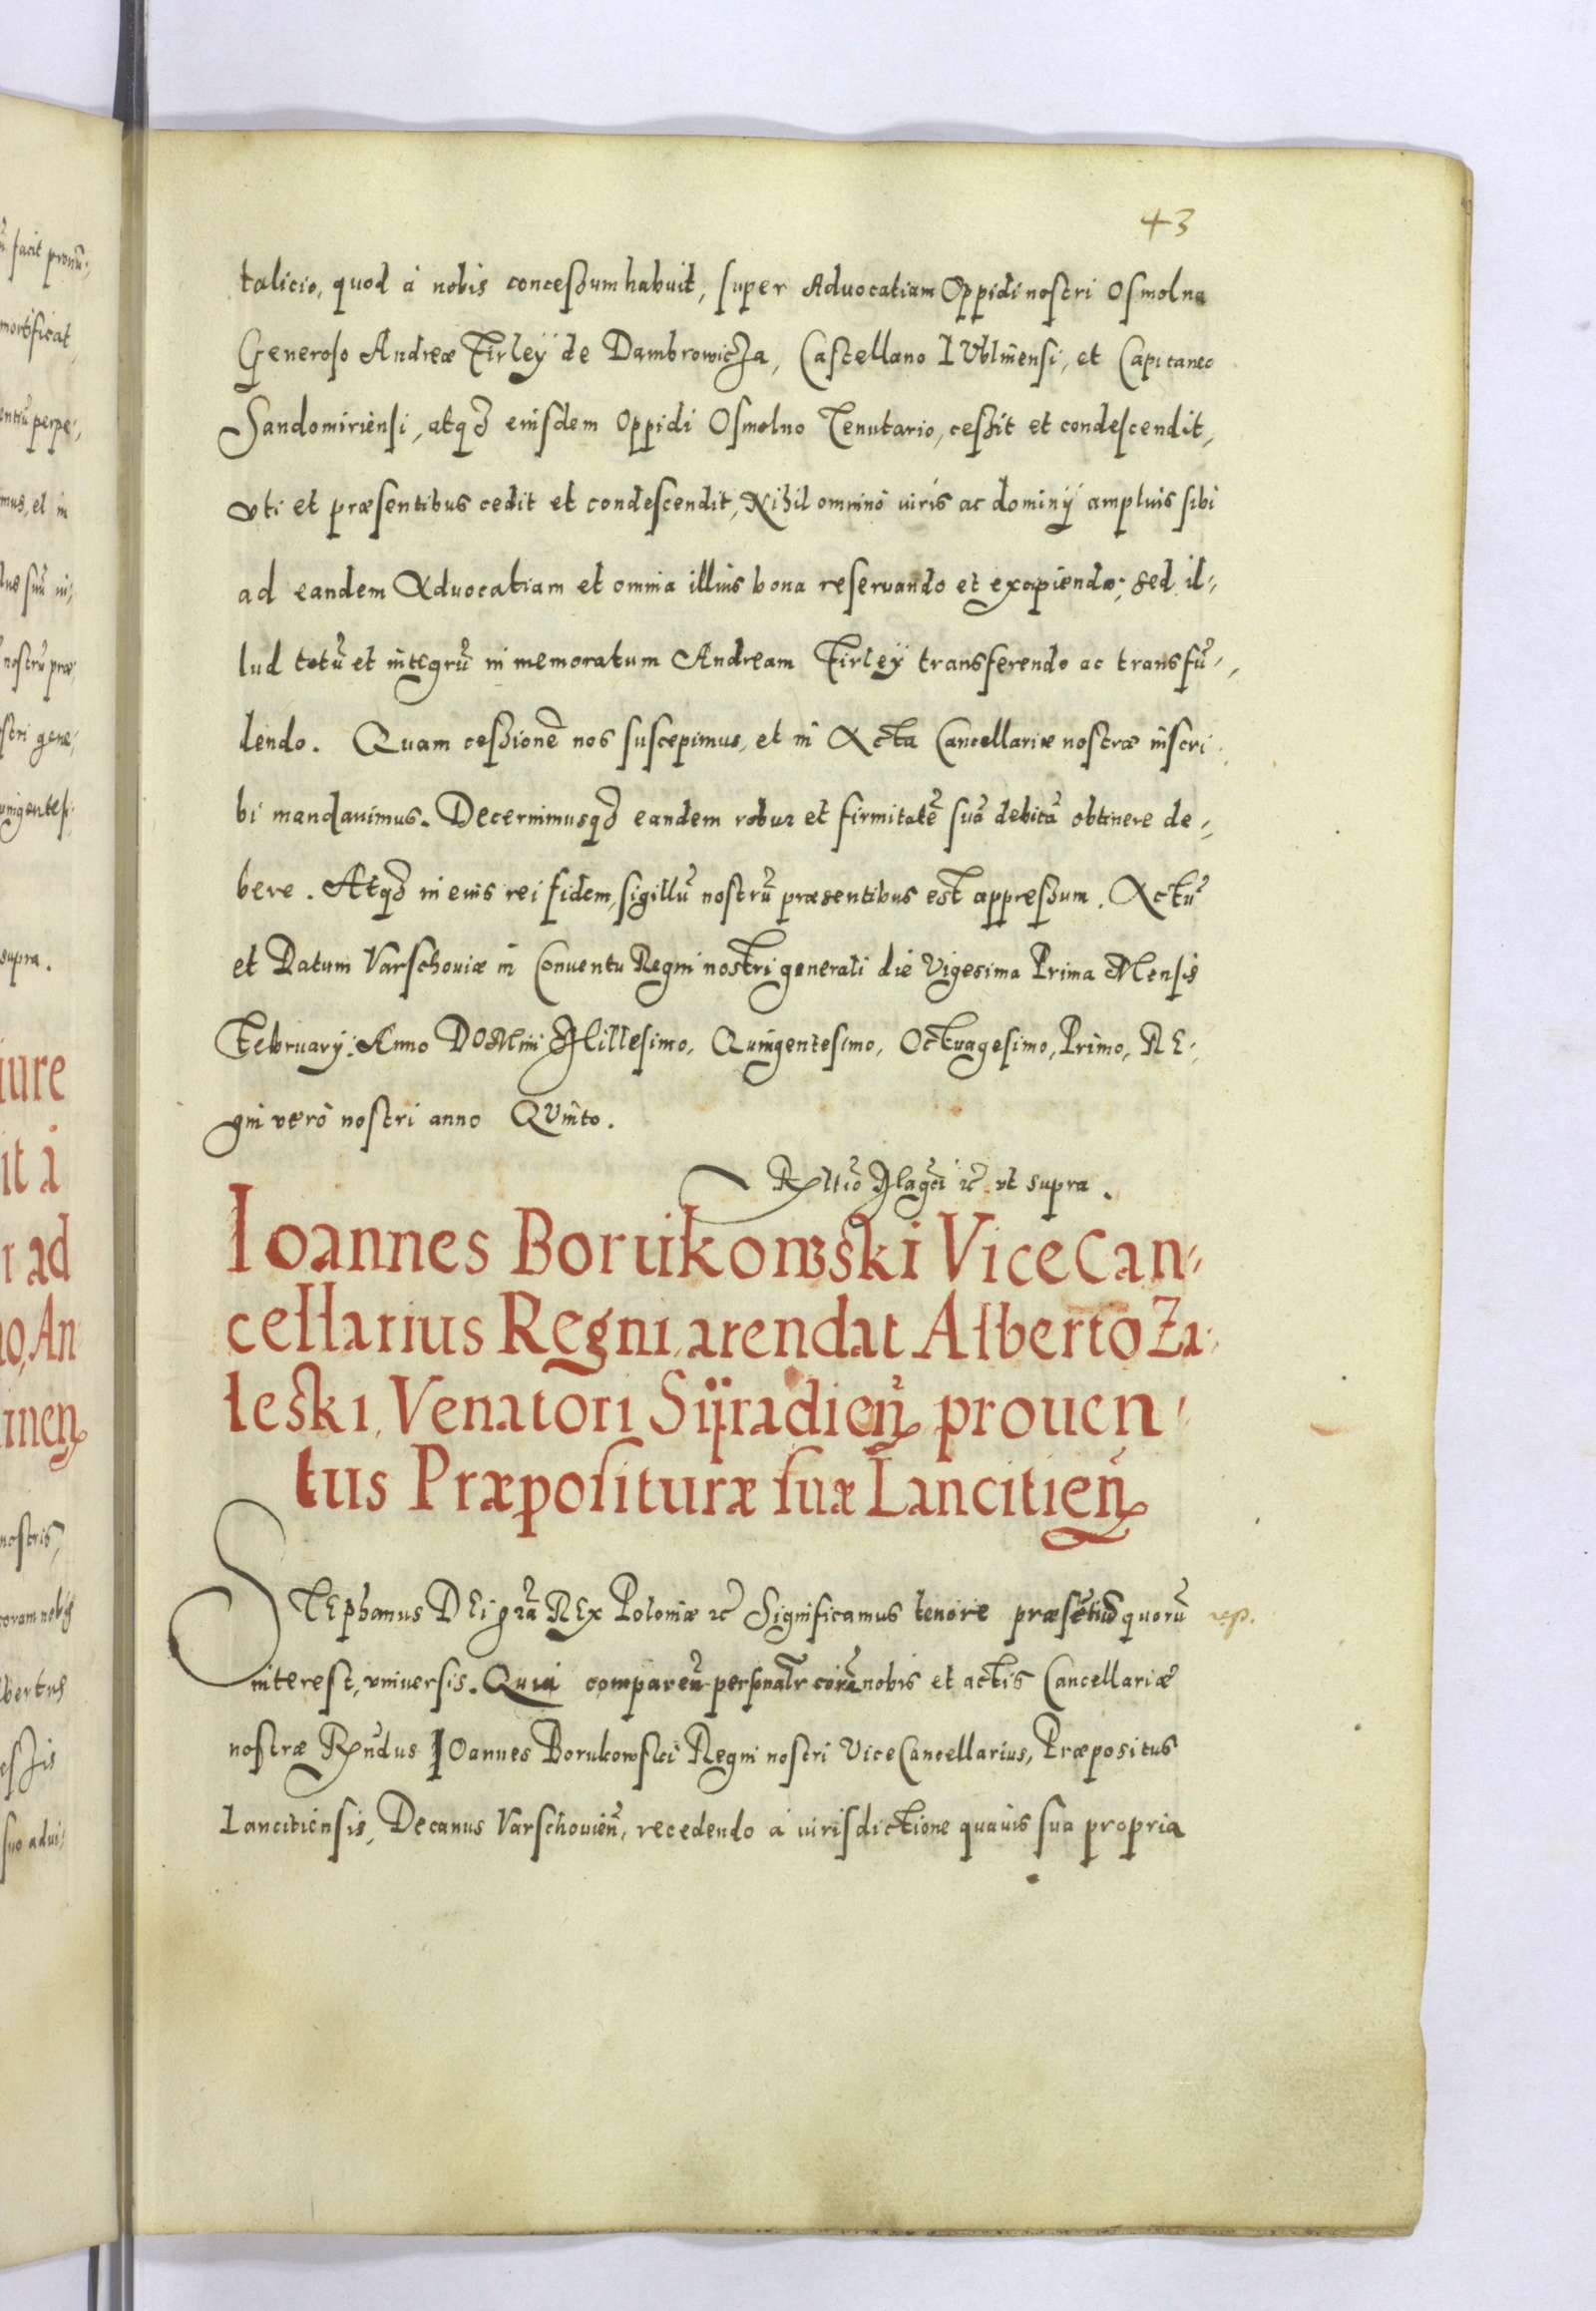 43
talicio, quod à nobis concessum habuit, super Aduocatiam Oppidi nostri Osmolna
Generoso Andreæ Firleÿ de Dambrowicza, Castellano LVblinensi, et Capitaneo
Sandomiriensi, atq3 eiusdem Oppidi Osmolno Tenutario, cessit et condescendit,
vti et præsentibus cedit et condescendit, Nihil omninò iuris ac dominÿ amplius sibi
ad eandem Aduocatiam et omnia illius bona reseruando et excipiendo; sed il-
lud totū et integrū in memoratum Andream Firleÿ transferendo ac transfū-
dendo. Quam cessionē nos suscepimus, et in Acta Cancellariæ nostræ inscri
bi mandauimus. Decernimusq3 eandem robur et firmitatē suā debitā obtinere de-
bere. Atq3 in eius rei fidem, sigillū nostrū præsentibus est appressum. Actū
et Datum Varschouiæ in Conuentu Regni nostri generali die Vigesima Prima Mensis
Februarÿ. Anno DOMini Millesimo, Quingentesimo, Octuagesimo, Primo, RE-
gni verò nostri anno QVinto.
ut supra.
Ioannes Borukowski ViceCan-
cellarius Regni, arendat Alberto Za-
leski, Venatori Sÿradien̄ prouen-
tus Præposituræ suæ Lancitien̄
STEphanus DEi gr̄a REx Poloniæ &c Significamus tenore præsētiū quorū
rep.
interest, vniuersis. Quia comparen̄ personalr̄ corā nobis et actis Cancellariæ
nostræ Rn̄dus IOannes Borukowski Regni nostri ViceCancellarius, Præpositus
Lancitiensis, Decanus Varschouien̄, recedendo à iurisdictione quauis sua propria